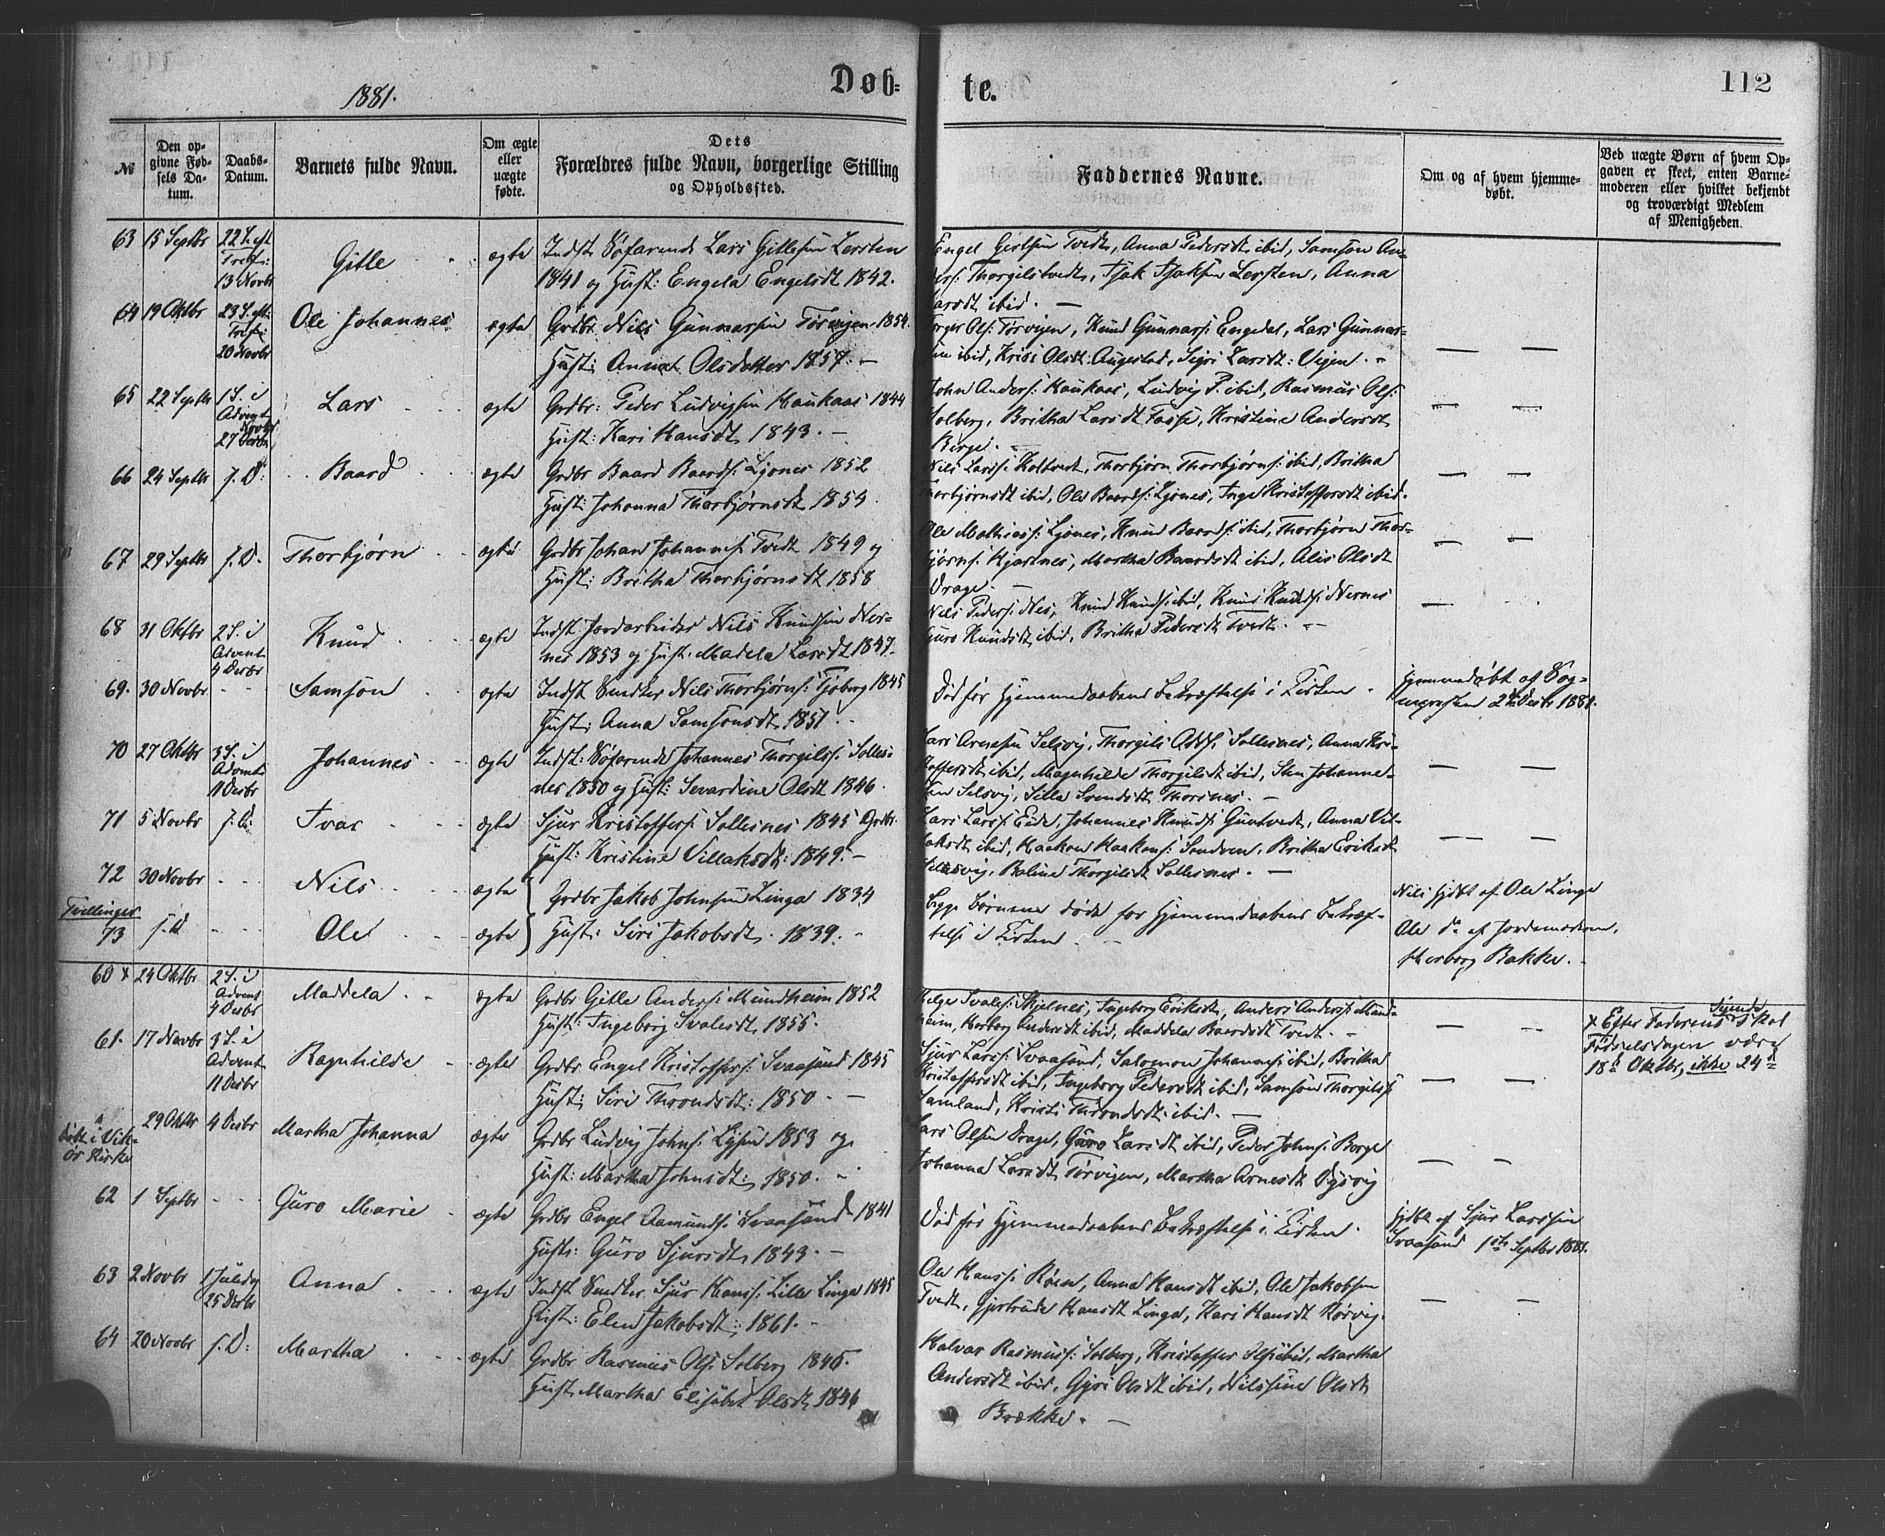 1881.
Døb-
te.
112
№
Den op-
givne Fød-
sels Da-
tum.
Daabs-
Datum.
Barnets fulde Navn.
Om ægte
eller
uægte
fødte.
Dets
Forældres fulde Navn, borgerlige Stilling
og Opholdssted.
Faddernes Navne.
Om og af hvem hjemme-
døbt.
Ved uægte Børn af hvem Op-
gaven er skeet, enten Barne-
moderen eller hvilket bekjendt
og troværdigt Medlem
af Menigheden.
63 15 Septbr 22 S. eft Gitle ægte Indst Søfarende Lars Gitlesen Lersten
Trefor:
13 Novbr 1841 og Hust: Engela Engelsdt 1842.
Tvedt, Anna Pedersdt ibid, Samson An-
ders: Thorgilstvedt, Isak Isaksen Lersten, Anna
Larsdt ibid. —
64 19 Oktbr 23 S. eft: Ole Johannes ægte Grdbr Nils Gunnarsen Tørvigen 1854.
20 Novbr Hust: Anna Olsdatter 1857. —
Ols: Tørvigen, Knud Gunnars: Engedal, Lars Gunnar-
sen ibid, Olsdt: Augestad, Sigri Larsdt: Vigen. — —
65 22 Septbr 1 S. i Lars ægte Grdbr: Peder Ludvigsen Haukaas 1844
Advent
Novbr
27 Hust: Kari Hansdt 1843. —
John Anders: Haukaas, Ludvig P. ibid, Rasmus Ols:
Solberg, Britha Larsdt Fosse, Kristine Andersdt
Berge. — — —
66 24 Septbr s. D. Baard ægte Grdbr Baard Baards: Ljones 1852
Hust: Johanna Thorbjørnsdt 1854.
Nils Larss: Kaltvedt, Thorbjørn Thorbjørns: ibid, Britha
Thorbjørnsdt ibid, Ole Baards: Ljones, Inga Kristoffersdt ibid. — —
67 29 Septbr s. D. Thorbjørn ægte Grdbr Johan Johannes: Tvedt 1849 og
Hust: Britha Thorbjørnsdt 1858
Ole Mathias: Ljones, Knud Baards: ibid, Thorbjørn Thor-
bjørns: Martha Baardsdt ibid, Olsdt
Drage. — — —
68 31 Oktbr 2 S. i Knud ægte Indst Jordarbeider Nils Knudsen Ner-
Advent
4 Desbr nes 1853 og Hust. Madela Larsdt 1847.
Nils Peders: Nes, Knud Knuds: ibid, Knud Knuds: Nernes
Guro Knudsdt ibid, Britha Pedersdt Tvedt. — —
69. 30 Novbr Samson ægte Indst Snedker Nils Thorbjørns: 1845
Hust: Anna Samsonsdt 1851. —
Død før Hjemmedaabens Bekræftelse i Kirken.
Hjemmedøbt af Sog-
nepresten 2den Desbr 1881.
70 27 Oktbr 3 S. i Johannes ægte Indst: Søfarende Johannes Thorgils: Solles-
Advent
11 Desbr nes 1850 og Hust: Sevardine Olsdt 1846.
Lars Arnesen Selsvig, Thorgils Solles­nes, Anna Kri-
stoffersdt ibid, Magnhilde Thorgilsdt ibid, Sten Johanne-
sen Selsvig, Silla Svendsdt Thorsnes. — — —
71 5 Novbr s. D. Ivar ægte Sjur Kristoffers: Sollesnes 1845 Grdbr.
Hust: Kristine Villaksdt: 1849. —
Lars Lars: Eide, Johannes Knuds: Anna Vil-
laksdt ibid, Haakon Haakons: Sandven, Britha Eriksdt
Thorgilsdt Sollesnes. — — —
72 30 Novbr Nils ægte Grdbr Jakob Johnsen Linga 1834
Tvillinger
73 s. D Ole ægte Hust: Siri Jakobsdt. 1839. —
Begge Børnene døde før Hjemmedaabens Bekræf-
telse i Kirken.
Nils hjdbt af Ole Linge
Ole do af Jordemoderen
Bakke.
60 x 24 Oktbr 2 S. i Maddela ægte Grdbr Gitle Anders: Mundheim 1852
Advent
4 Desbr Hust: Ingeborg Ivalesdt 1855.
Helge Ivales: Skjelnes, Ingeborg Eriksdt, Anders Anders: Mund-
heim, Andersdt ibid, Maddela Baardsdt Tvedt. — — —
x Efter Faderens Sigende skal
Fødselsdagen være
18de Oktbr, ikke 24de
61. 17 Novbr 3 S. i Ragnhilde ægte Grdbr Engel Kristoffers: Svaasand 1845
Advent
11 Desbr Hust: Siri Throndsdt: 1850. —
Sjur Lars: Svaasand, Salomon Johannes: ibid, Britha
Kristoffersdt ibid, Ingeborg Pedersdt ibid, Samson Thorgils:
Samland, Kristi Throndsdt: ibid. — — —
døbt i Vik-
ør Kirke
29 Oktbr 4 Desbr Martha Johanna ægte Grdbr Ludvig Johns: 1853 og
Hust: Martha Johnsdt: 1850. —
Lars Olsen Drage, Guro Larsdt ibid, Peder Johns: Berge
Johanna Larsdt Tørvigen, Martha Arnesdt — —
62 1 Septbr Guro Marie ægte Grdbr Engel Aamunds: Svaasand 1841
Hust: Guro Sjursdt 1843. —
Død før Hjemmedaabens Bekræftelse i Kirken.
hjdbt af Sjur Larssen
Svaasand 1ste Septbr 1881.
63 2 Novbr 1 Juledag Anna ægte Indst Snedker Sjur Hans: Lille Linga 1845
25 Desbr Hust: Elen Jakobsdt: 1861. —
Ole Hans: Anna Hansdt ibid, Ole Jakobsen
Tvedt, Gjertrude Hansdt Linga, Kari Hansdt — —
64 20 Novbr s. D: Martha ægte Grdbr Rasmus Ols: Solberg 1845.
Hust Martha Elisabet Olsdt 1846
Halvar Rasmus: Solberg, Kristoffer ibid, Martha
Andersdt ibid, Gjøri Olsdt ibid, Nilssine Olsdt
Brække. —